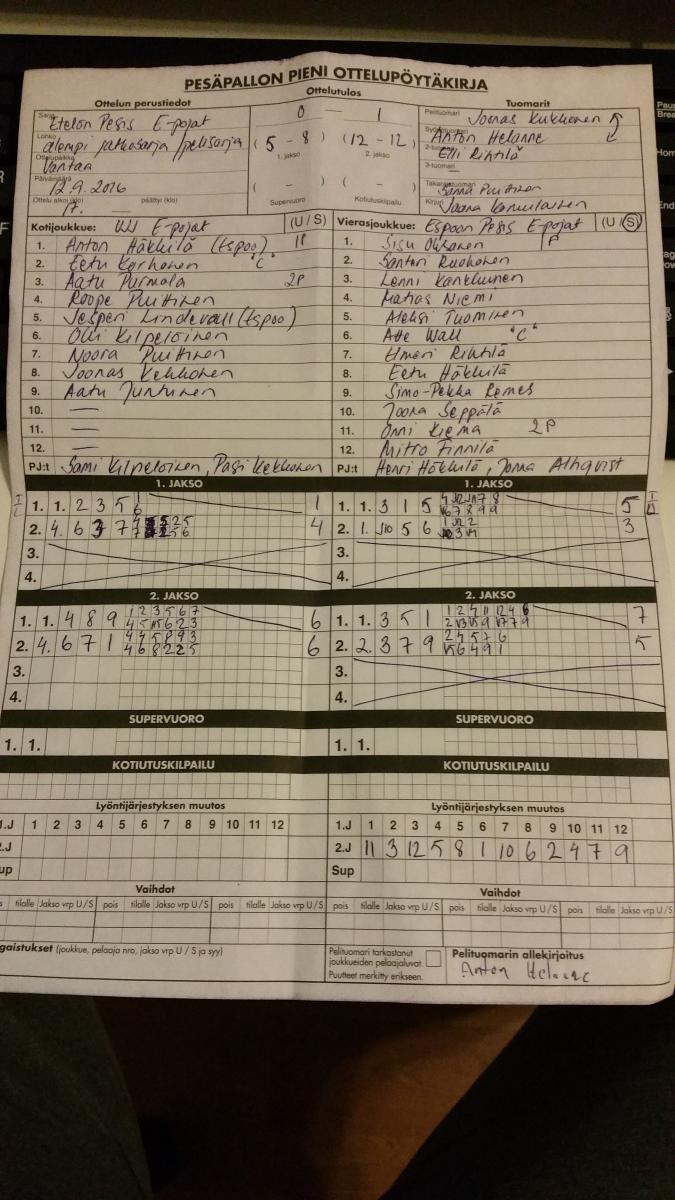 PESÄPALLON PIENI OTTELUPÖYTÄKIRJA
Ottelun perustiedot
Ottelutulos
Tuomarit
Sarja
Etelän Pesis E-pojat
0 — 1
Pelituomari Joonas Kukkonen
Lohko
alempi jatkosarja/pelisarja
(5 - 8) (12 - 12)
1. jakso 2. jakso
Anton Helanne
2-tuomari
Elli Rihtilä
Ottelupaikka
Vantaa
3-tuomari
Päivämäärä
12.9.2016
( - ) ( - )
Takarajatuomari
Sanna Puittinen
Ottelu alkoi (klo) päättyi (klo)
17.
Supervuoro Kotiutuskilpailu
Kirjuri
Kotijoukkue: VVV E-pojat (U / S)
Vierasjoukkue: Espoon Pesis E-pojat (U / S)
1. Anton Häkkilä (Espoo) 1P
1. Sisu Oksanen 1P
2. Eetu Korhonen "C"
2. Santeri Ruohonen
3. Aatu Purmola 2P
3. Lenni Kankkunen
4. Roope Puittinen
4. Matias Niemi
5. Jesperi Lindevall (Espoo)
5. Aleksi Tuominen
6. Olli Kilpeläinen
6. Atte Wall "C"
7. Noora Puittinen
7. Elmeri Rihtilä
8. Joonas Kekkonen
8. Eetu Häkkilä
9. Aatu Juntunen
9. Simo-Pekka Remes
10. —
10. Joona Seppälä
11. —
11. Onni Kiema 2P
12. —
12. Mitro Finnilä
PJ:t Sami Kilpeläinen, Pasi Kekkonen
PJ:t Henri Häkkilä, Jonna Ahlqvist
1. JAKSO
1. JAKSO
1. 1. 2 3 5 1
6 1
1. 1. 3 1 5 5
2. 4. 6 3 7 4
2. 1. 5 6 3
3.
3.
4.
4.
2. JAKSO
2. JAKSO
1. 1. 4 8 9 1 2 3 5 6 7 6
1. 1. 3 5 1 7
2. 4. 6 7 1 4 4 5 8 9 3
4 6 8 2 2 5 6
2. 2. 3 7 9 2 4 5 7 6 5
3.
3.
4.
4.
SUPERVUORO
SUPERVUORO
1. 1.
1. 1.
KOTIUTUSKILPAILU
KOTIUTUSKILPAILU
Lyöntijärjestyksen muutos
Lyöntijärjestyksen muutos
1.J 1 2 3 4 5 6 7 8 9 10 11 12
1.J 1 2 3 4 5 6 7 8 9 10 11 12
2.J
2.J 11 3 12 5 8 1 10 6 2 4 7 9
Sup
Sup
Vaihdot
Vaihdot
tilalle Jakso vrp U/S pois tilalle Jakso vrp U/S pois tilalle Jakso vrp U/S
pois tilalle Jakso vrp U/S pois tilalle Jakso vrp U/S pois tilalle Jakso vrp U/S
gaistukset (joukkue, pelaaja nro, jakso vrp U / S ja syy)
Pelituomari tarkastanut
joukkueiden pelaajaluvat.
Puutteet merkitty erikseen.
Pelituomarin allekirjoitus
Anton Helanne